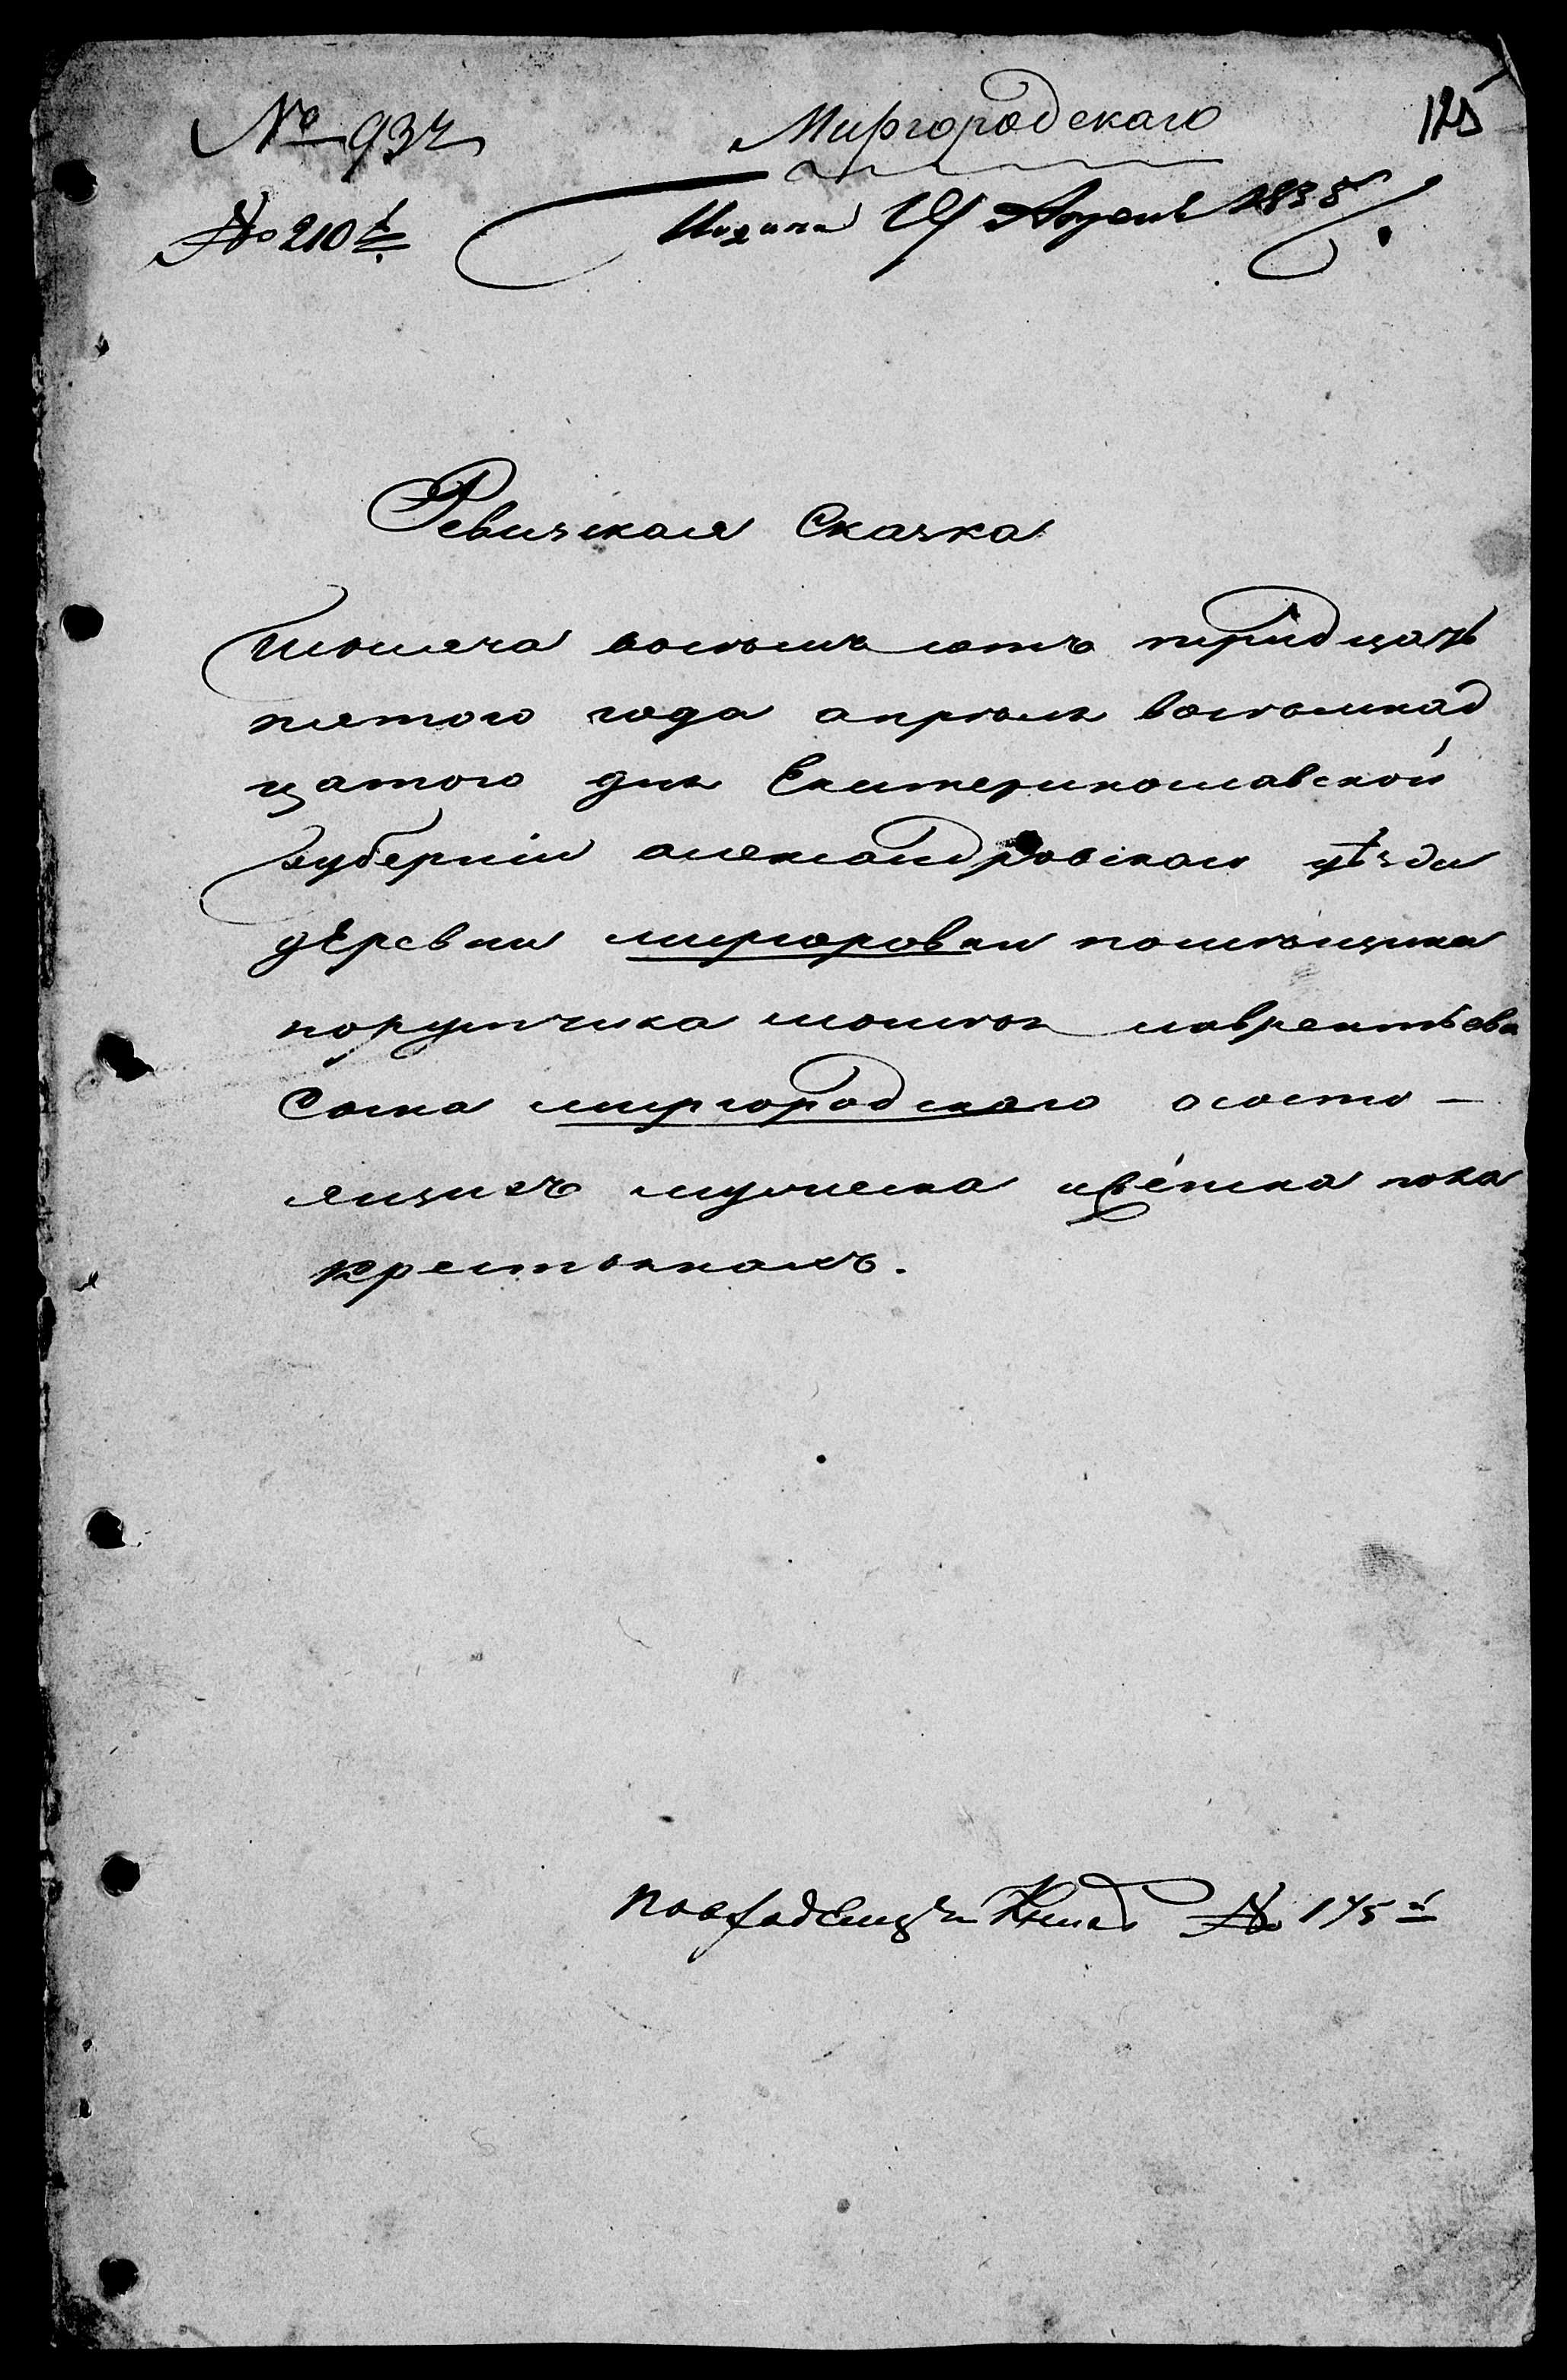 № 937
Миргородскаго
125
№ 210й
Подана 19 Апреля 1835
Ревизская Сказка
тысяча восемь сотъ тридцать
пятого года апреля восемнад
цатого дня Екатеринославской
губернiи александровскаго уѣзда
деревни миргоровки помѣщика
порутчика моисея лаврентьева
Сына миргородскаго ососто-
ящихъ мужеска иженска пола
крестьянахъ.
По Книге № 175й